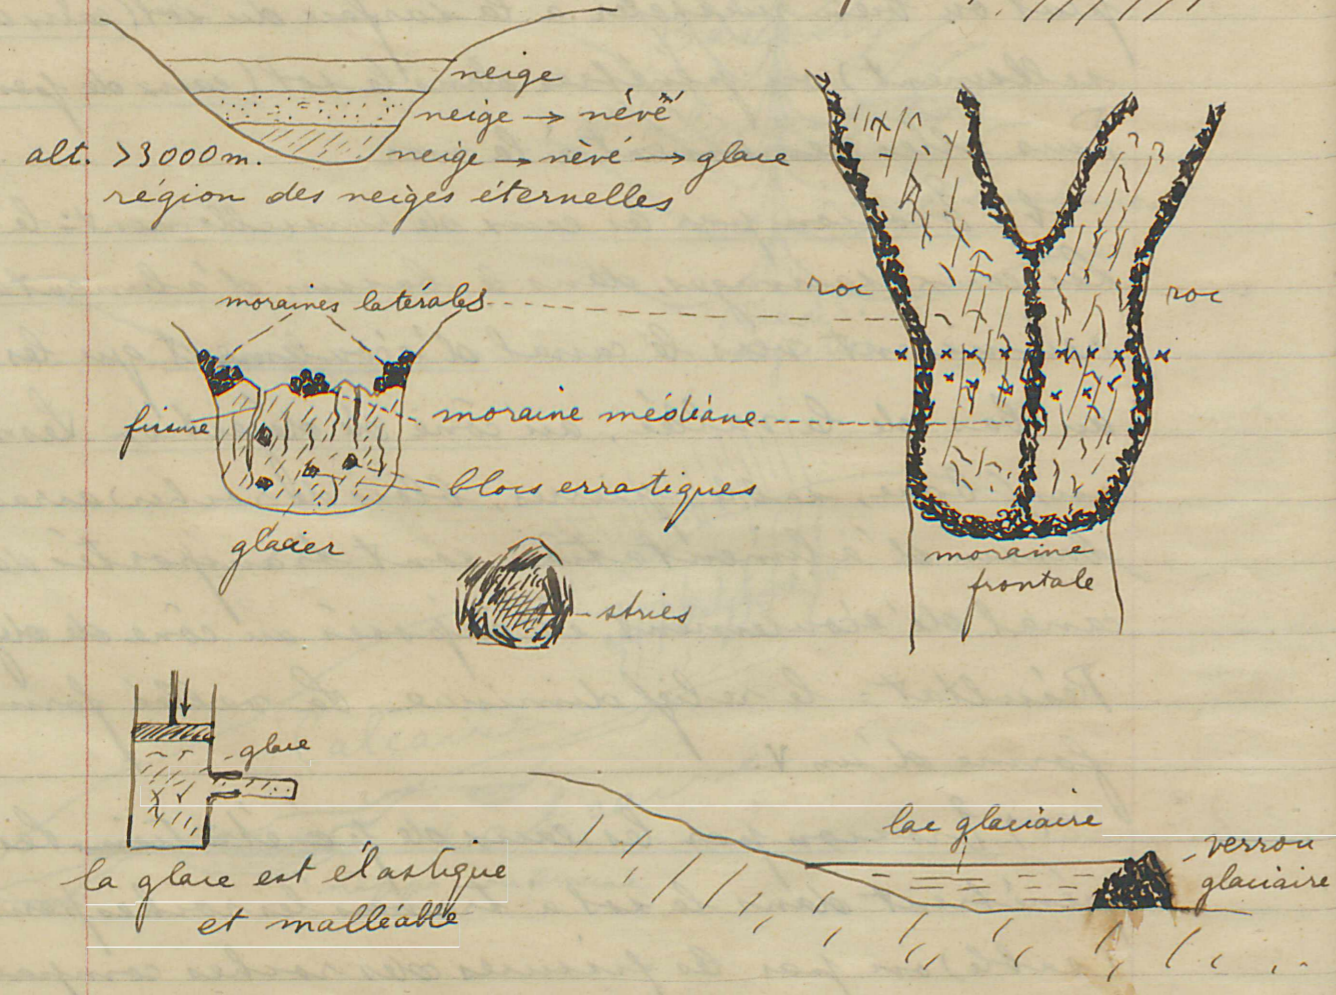 neige
neige → névé
alt. >3000m.
neige → névé → glace
région des neiges éternelles
moraines latérales
roc
roc
fissure
moraine médiane
blocs erratiques
glacier
moraine
frontale
stries
glace
la glace est élastique
et malléable
lac glaciaire
verrou
glaciaire